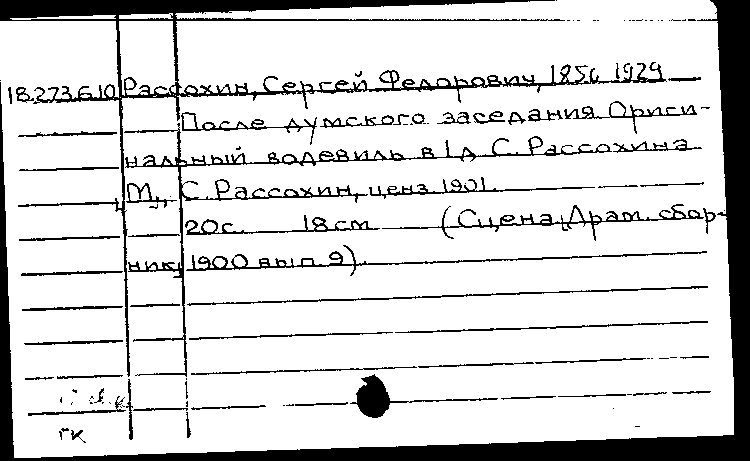 18.273.6.10 Рассохин, Сергей Федорович, 1850 1929
После думского заседания. Ориги-
нальный водевиль в 1 д. С. Рассохина
М., С. Рассохин, ценз. 1901.
20 с. 18 см (Сцена. Драм. сбор-
ник, 1900 вып. 9).
ГК